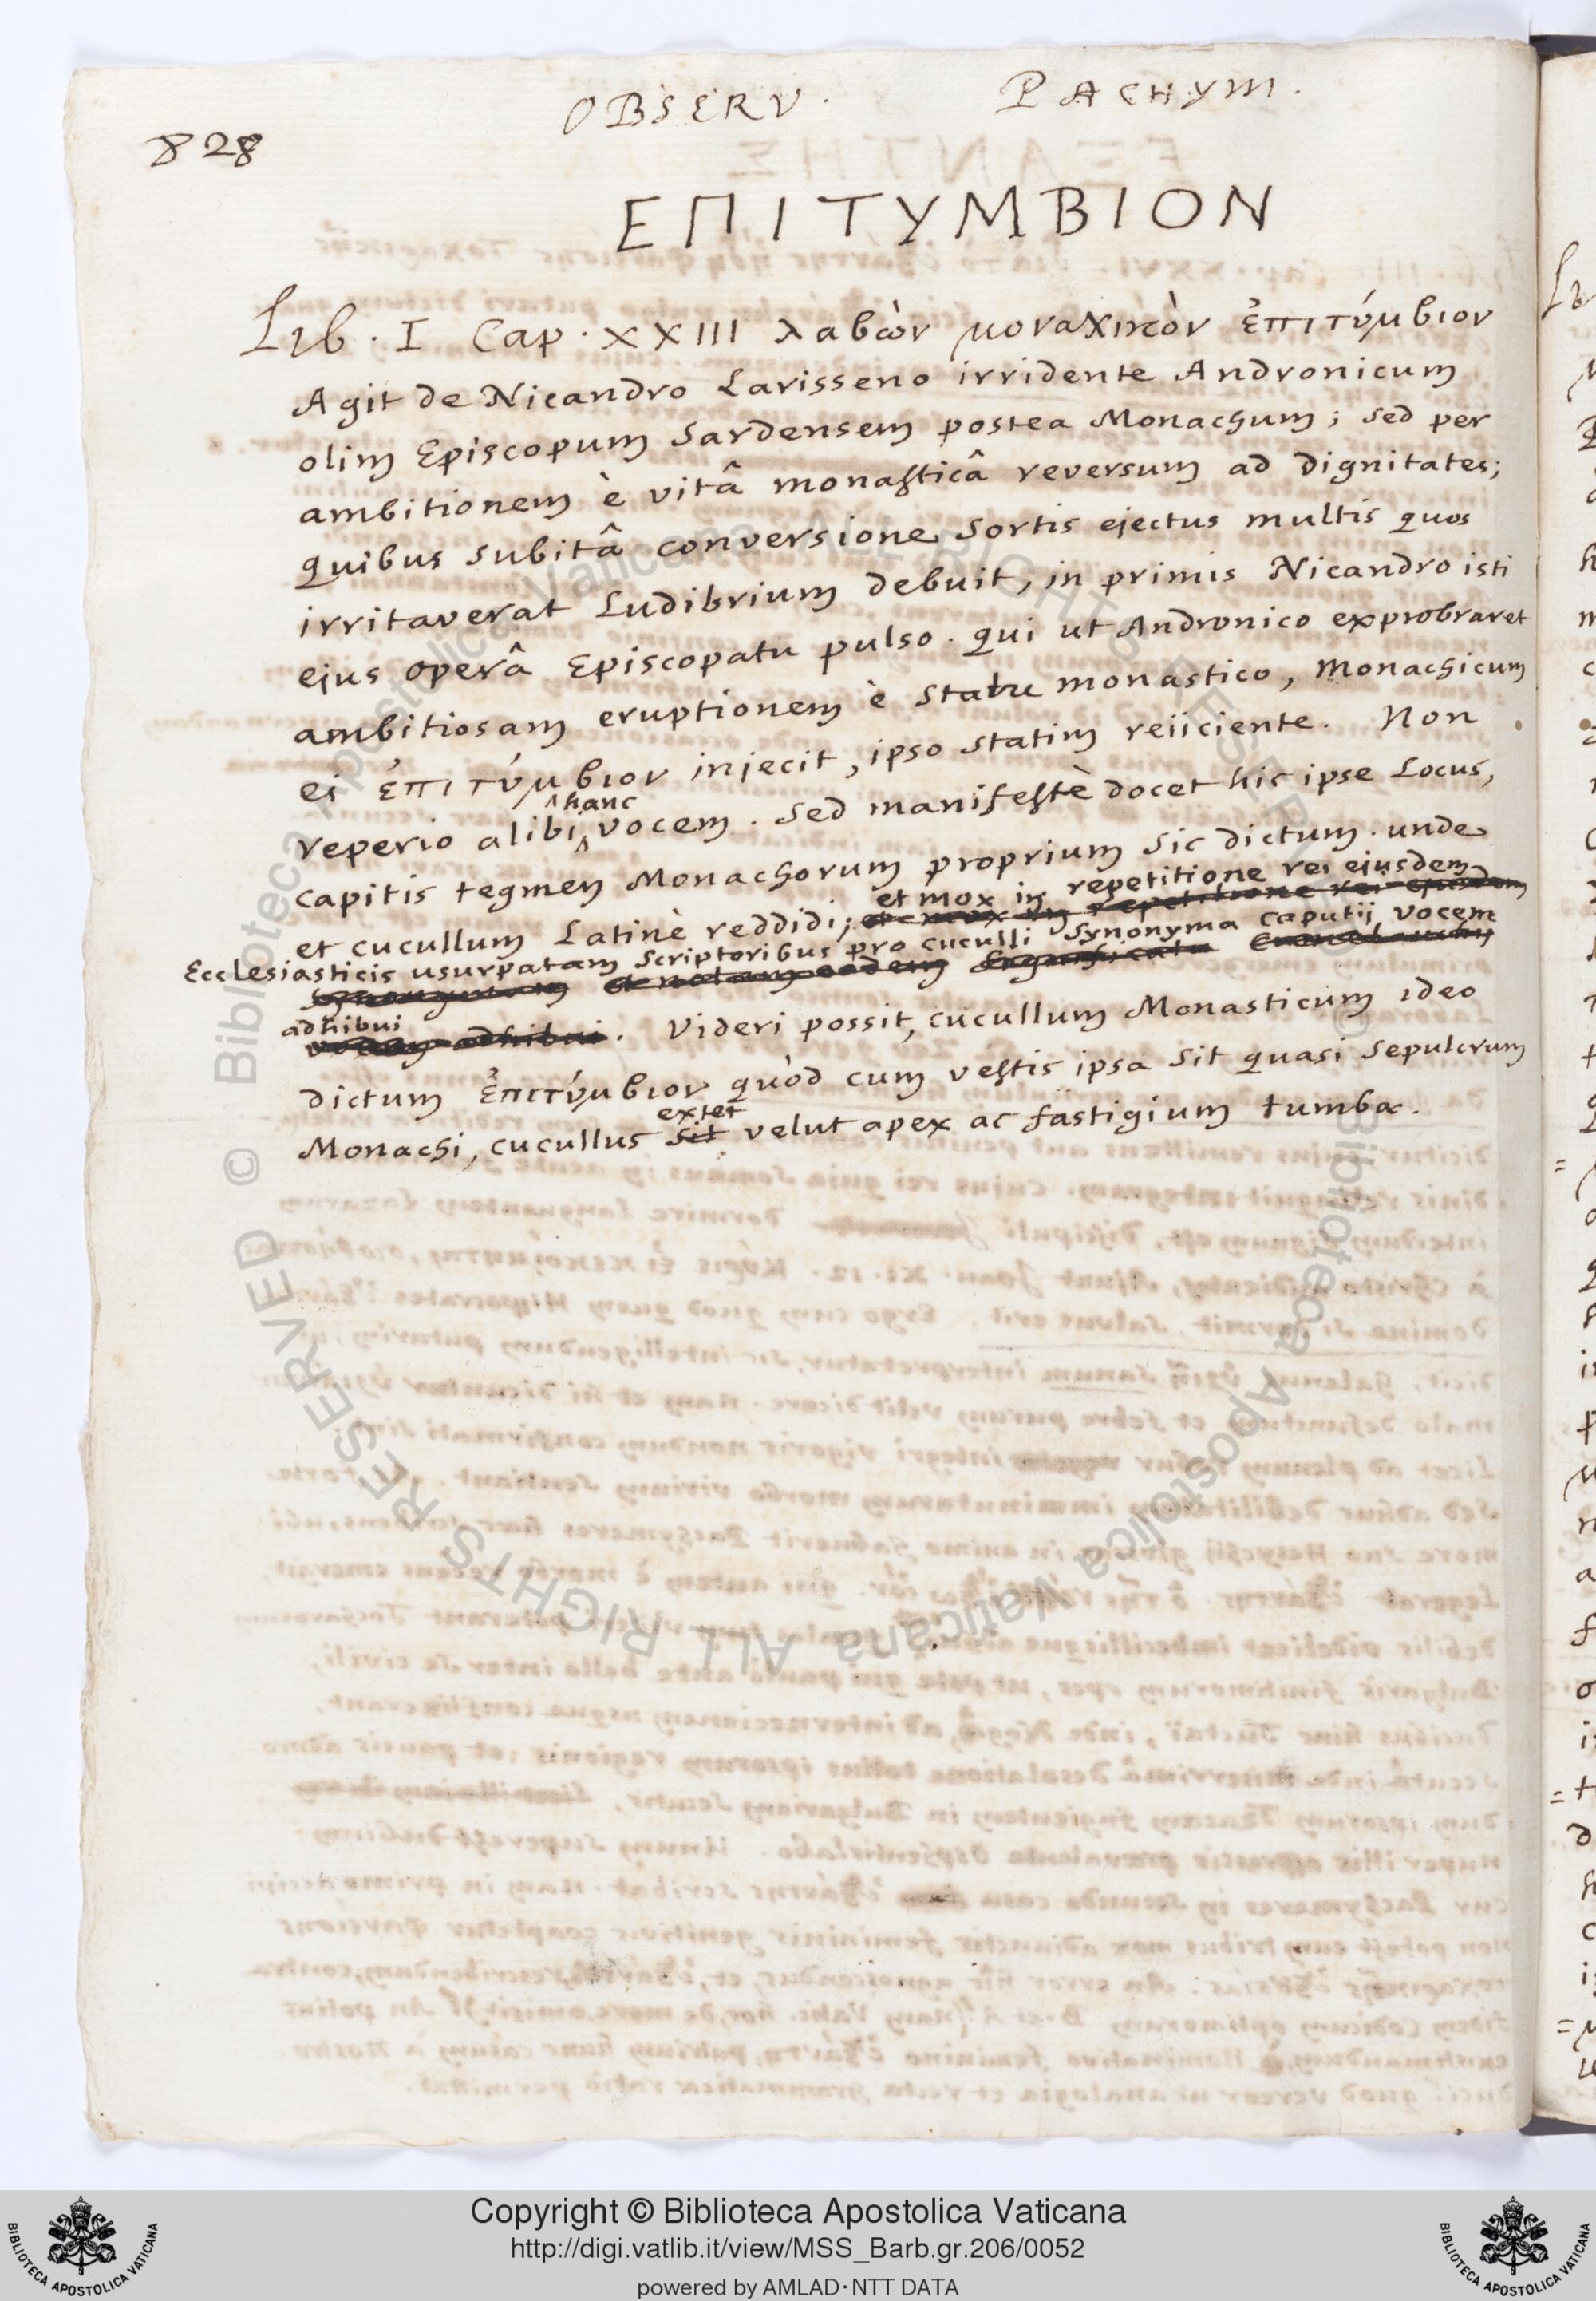 OBSERV. PACHYM.
828
ΕΠΙΤΥΜΒΙΟΝ
Lib. I Cap. XXIII λαβὼν μοναχικὸν ἐπιτύμβιον
Agit de Nicandro Larisseno irridente Andronicum
olim Episcopum Sardensem postea Monachum; sed per
ambitionem è vitâ monasticâ reversum ad dignitates;
quibus subitâ conversione sortis ejectus multis quos
irritaverat Ludibrium debuit, in primis Nicandro isti
ejus operâ Episcopatu pulso. qui ut Andronico exprobraret
ambitiosam eruptionem è statu monastico, Monachicum
ei ἐπιτύμβιον injecit, ipso statim reiiciente. Non
reperio alibi hanc vocem. Sed manifestè docet hic ipse Locus,
capitis tegmen Monachorum proprium sic dictum. unde
et cucullum Latinè reddidi; et mox in repetitione rei ejusdem
Ecclesiasticis usurpatam Scriptoribus pro cuculli Synonyma caputij vocem
adhibui. Videri possit, cucullum Monasticum ideo
dictum ἐπιτύμβιον quòd cum vestis ipsa sit quasi sepulcrum
Monachi, cucullus sit extet velut apex ac fastigium tumbæ.
Copyright © Biblioteca Apostolica Vaticana
http://digi.vatlib.it/view/MSS_Barb.gr.206/0052
powered by AMLAD·NTT DATA
BIBLIOTECA APOSTOLICA VATICANA
BIBLIOTECA APOSTOLICA VATICANA
© Biblioteca Apostolica Vaticana ALL RIGHTS RESERVED
© Biblioteca Apostolica Vaticana ALL RIGHTS RESERVED